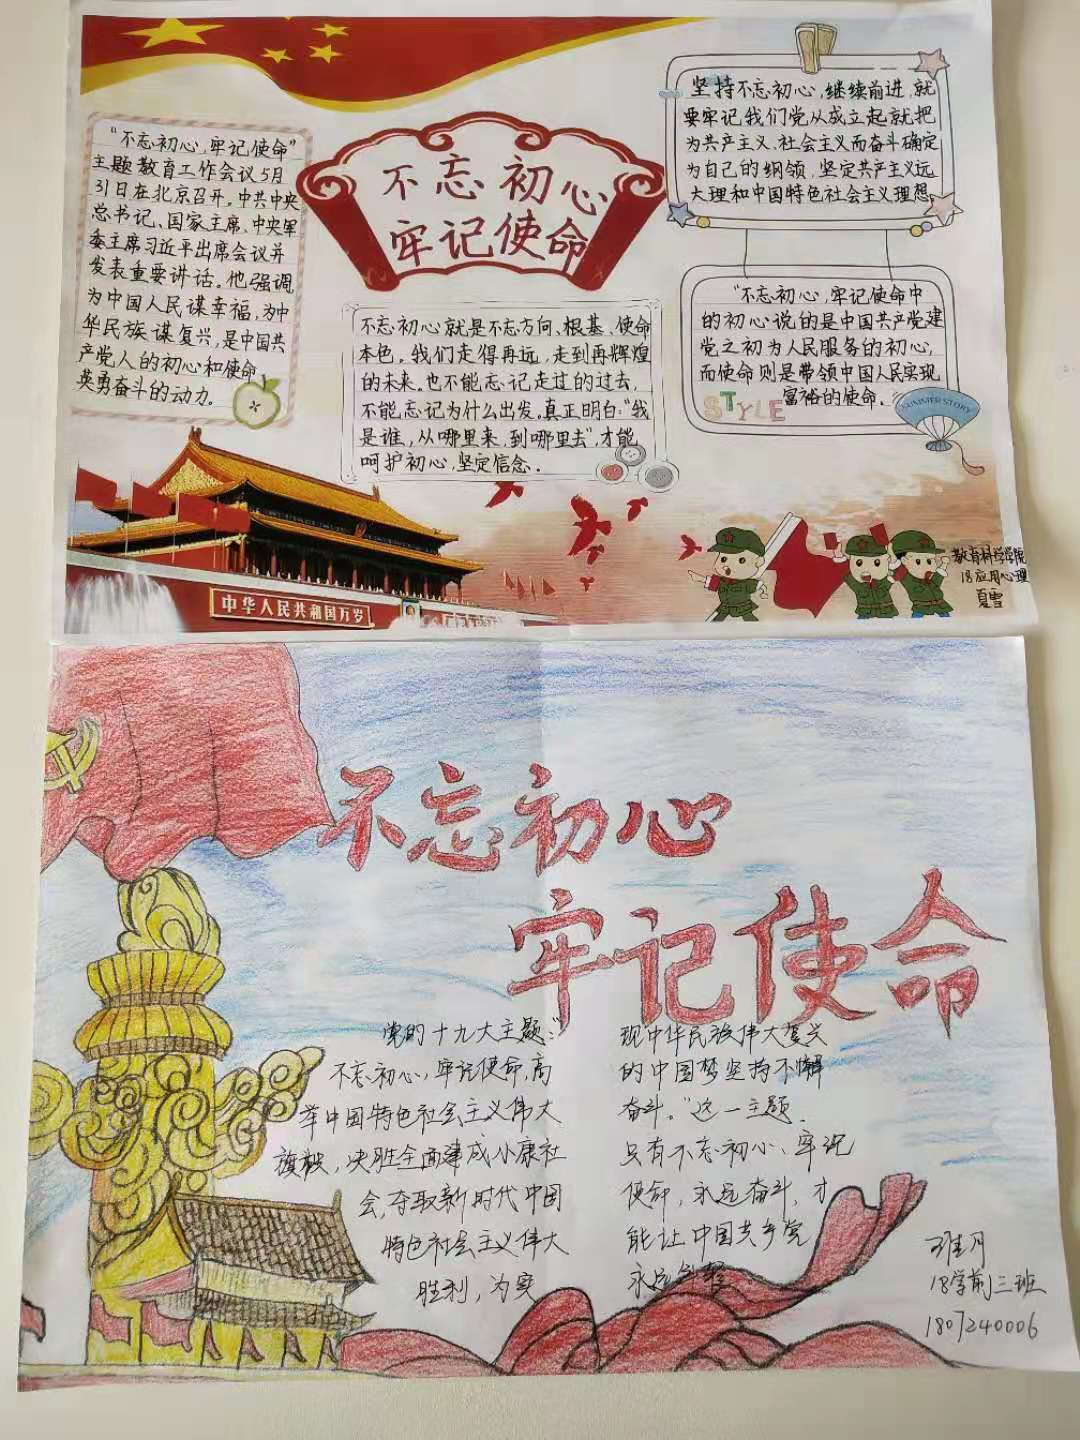 "不忘初心,牢记使命"
主题教育工作会议5月
31日在北京召开。中共中央
总书记、国家主席、中央军
委主席习近平出席会议并
发表重要讲话。他强调
为中国人民谋幸福,为中
华民族谋复兴,是中国共
产党人的初心和使命
英勇奋斗的动力。
不忘初心
牢记使命
不忘初心就是不忘方向、根基、使命
本色。我们走得再远,走到再辉煌
的未来。也不能忘记走过的过去,
不能忘记为什么出发。真正明白:"我
是谁,从哪里来,到哪里去",才能
呵护初心,坚定信念。
坚持不忘初心,继续前进,就
要牢记我们党从成立起就把
为共产主义、社会主义而奋斗确定
为自己的纲领,坚定共产主义远
大理和中国特色社会主义理想。
"不忘初心,牢记使命中
的初心说的是中国共产党建
党之初为人民服务的初心,
而使命则是带领中国人民实现
富裕的使命。
STYLE
SUMMER STORY
中华人民共和国万岁
教育科学学院
18应用心理
夏雪
不忘初心
牢记使命
党的十九大主题:"
不忘初心,牢记使命,高
举中国特色社会主义伟大
旗帜,决胜全面建成小康社
会,夺取新时代中国
特色社会主义伟大
胜利,为实
现中华民族伟大复兴
的中国梦坚持不懈
奋斗。"这一主题.
只有不忘初心、牢记
使命,永远奋斗,才
能让中国共产党
永远年轻
18学前三班
1807240006